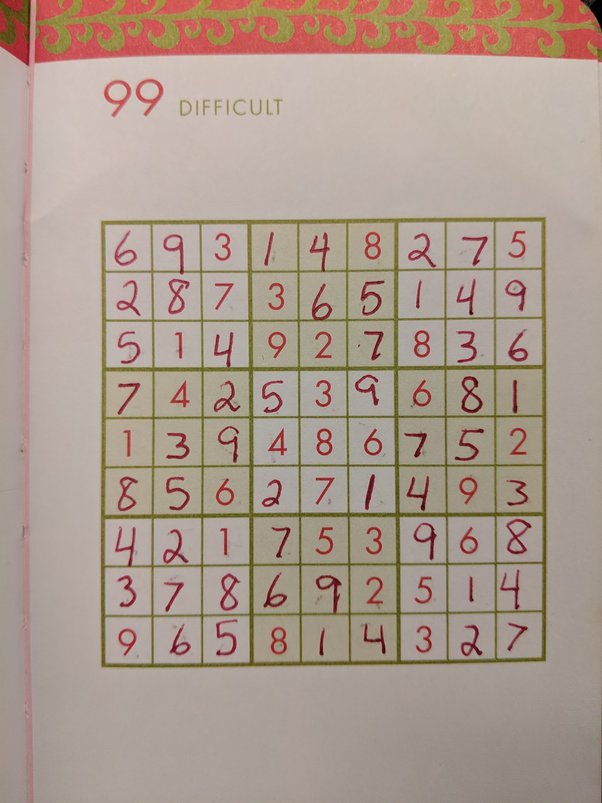 99 DIFFICULT
6 9 3 1 4 8 2 7 5
2 8 7 3 6 5 1 4 9
5 1 4 9 2 7 8 3 6
7 4 2 5 3 9 6 8 1
1 3 9 4 8 6 7 5 2
8 5 6 2 7 1 4 9 3
4 2 1 7 5 3 9 6 8
3 7 8 6 9 2 5 1 4
9 6 5 8 1 4 3 2 7